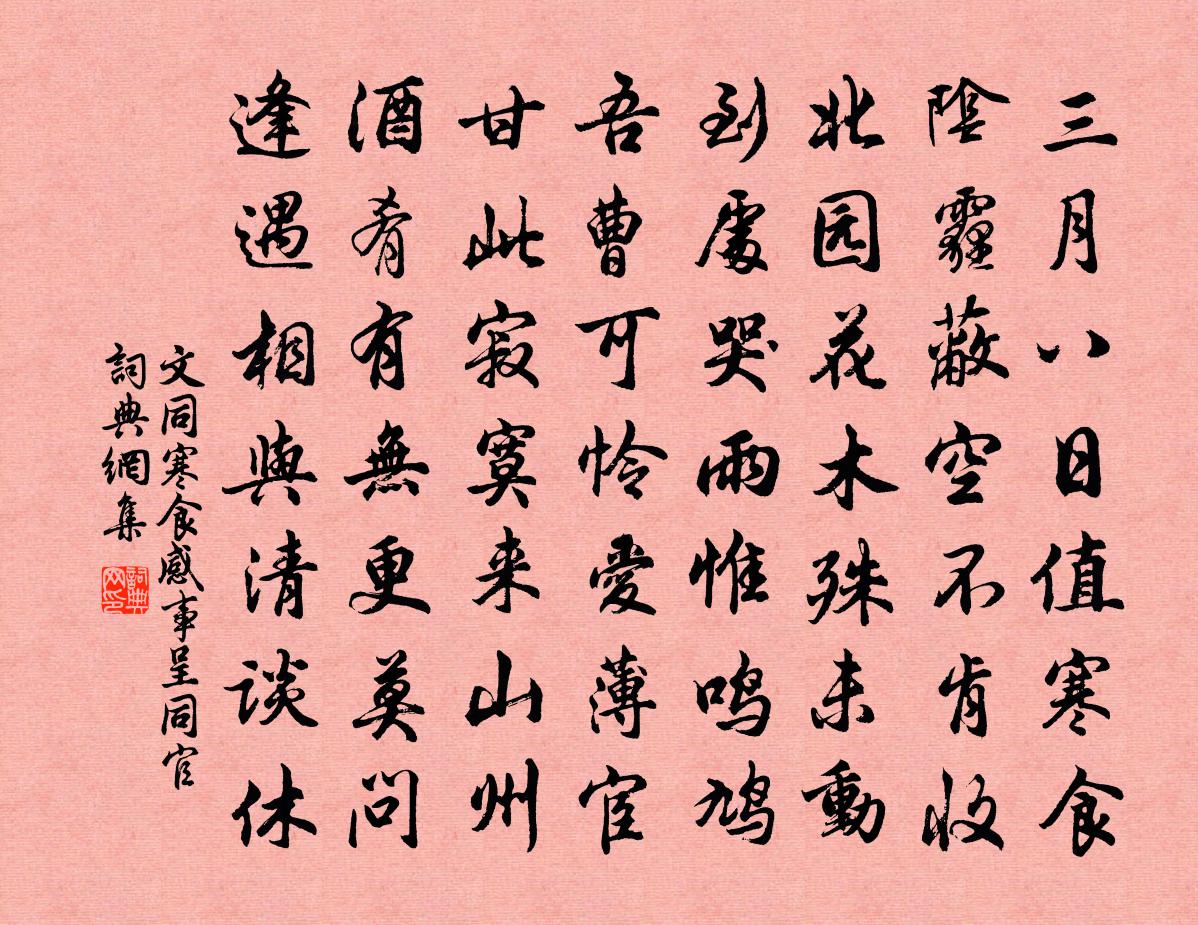 三月八日值寒食
陰霾蔽空不肯收
北园花木殊未動
到處哭雨惟鸣鸠
吾曹可怜愛薄宦
甘此寂寞来山州
酒肴有無更莫問
逢遇相與清談休
文同寒食感事呈同官
詞典網集
詞典
网印